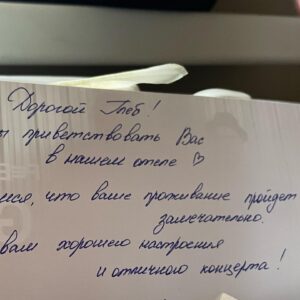 Дорогой Глеб!
приветствовать Вас
в нашем отеле ♡
что ваше проживание пройдет
замечательно.
вам хорошего настроения
и отличного концерта!